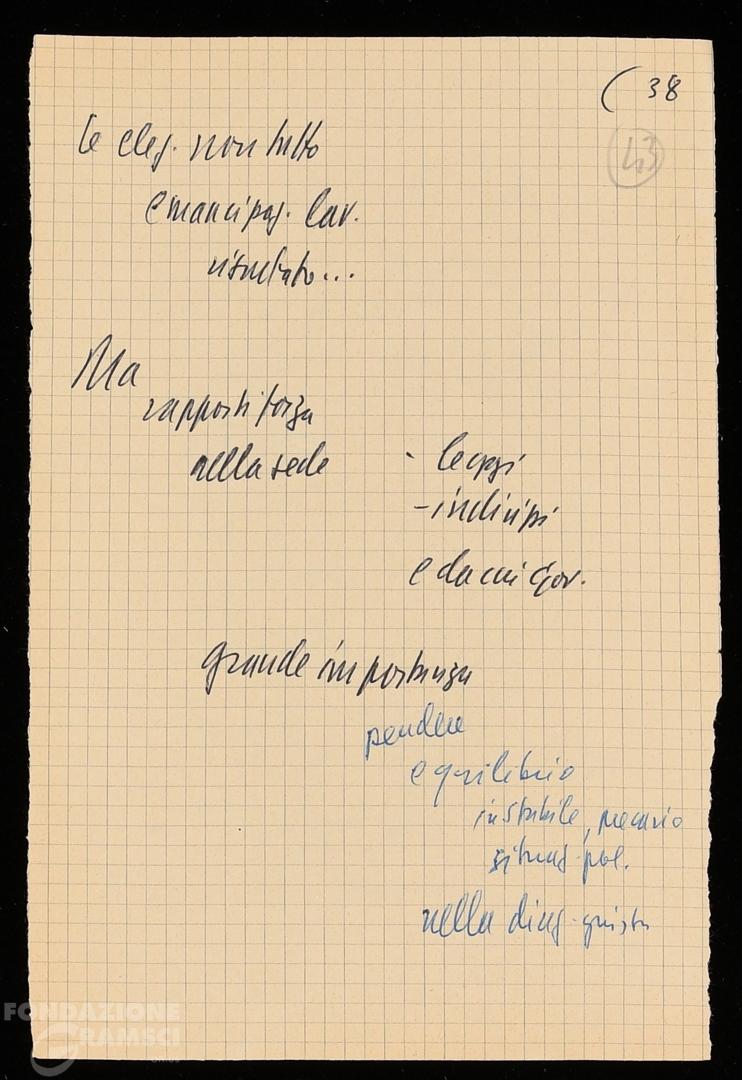 ( 38
43
le elez. non tutto
emancipaz. lav.
risultato...
Ma
rapporti forza
nella sede
- leggi
- indirizzi
e da cui gov.
grande importanza
pendere
equilibrio
instabile, precario
situaz. pol.
nella direz. giusta
FONDAZIONE
GRAMSCI
ONLUS